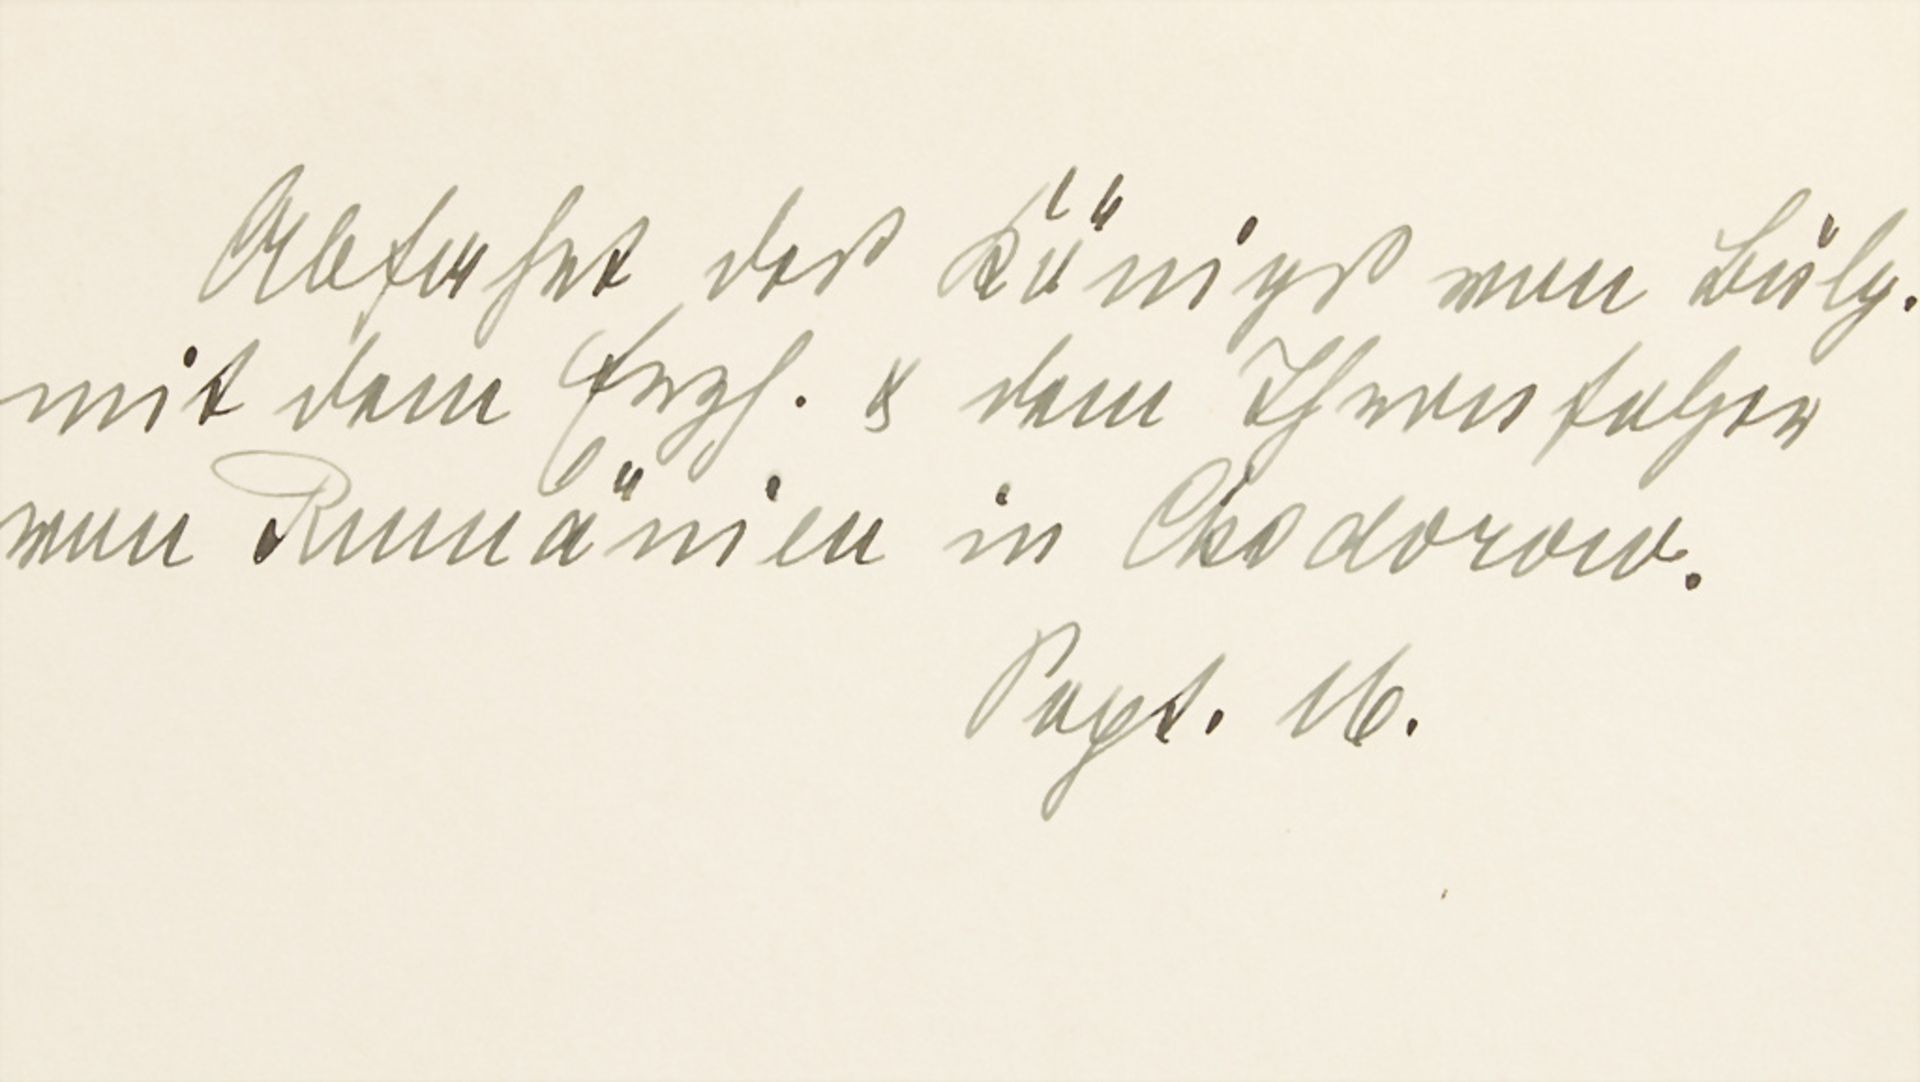 Abfahrt des Königs von Bulg.
mit dem Erzh. & dem Thronfolger
von Rumänien in Chodorow.
Sept. 16.